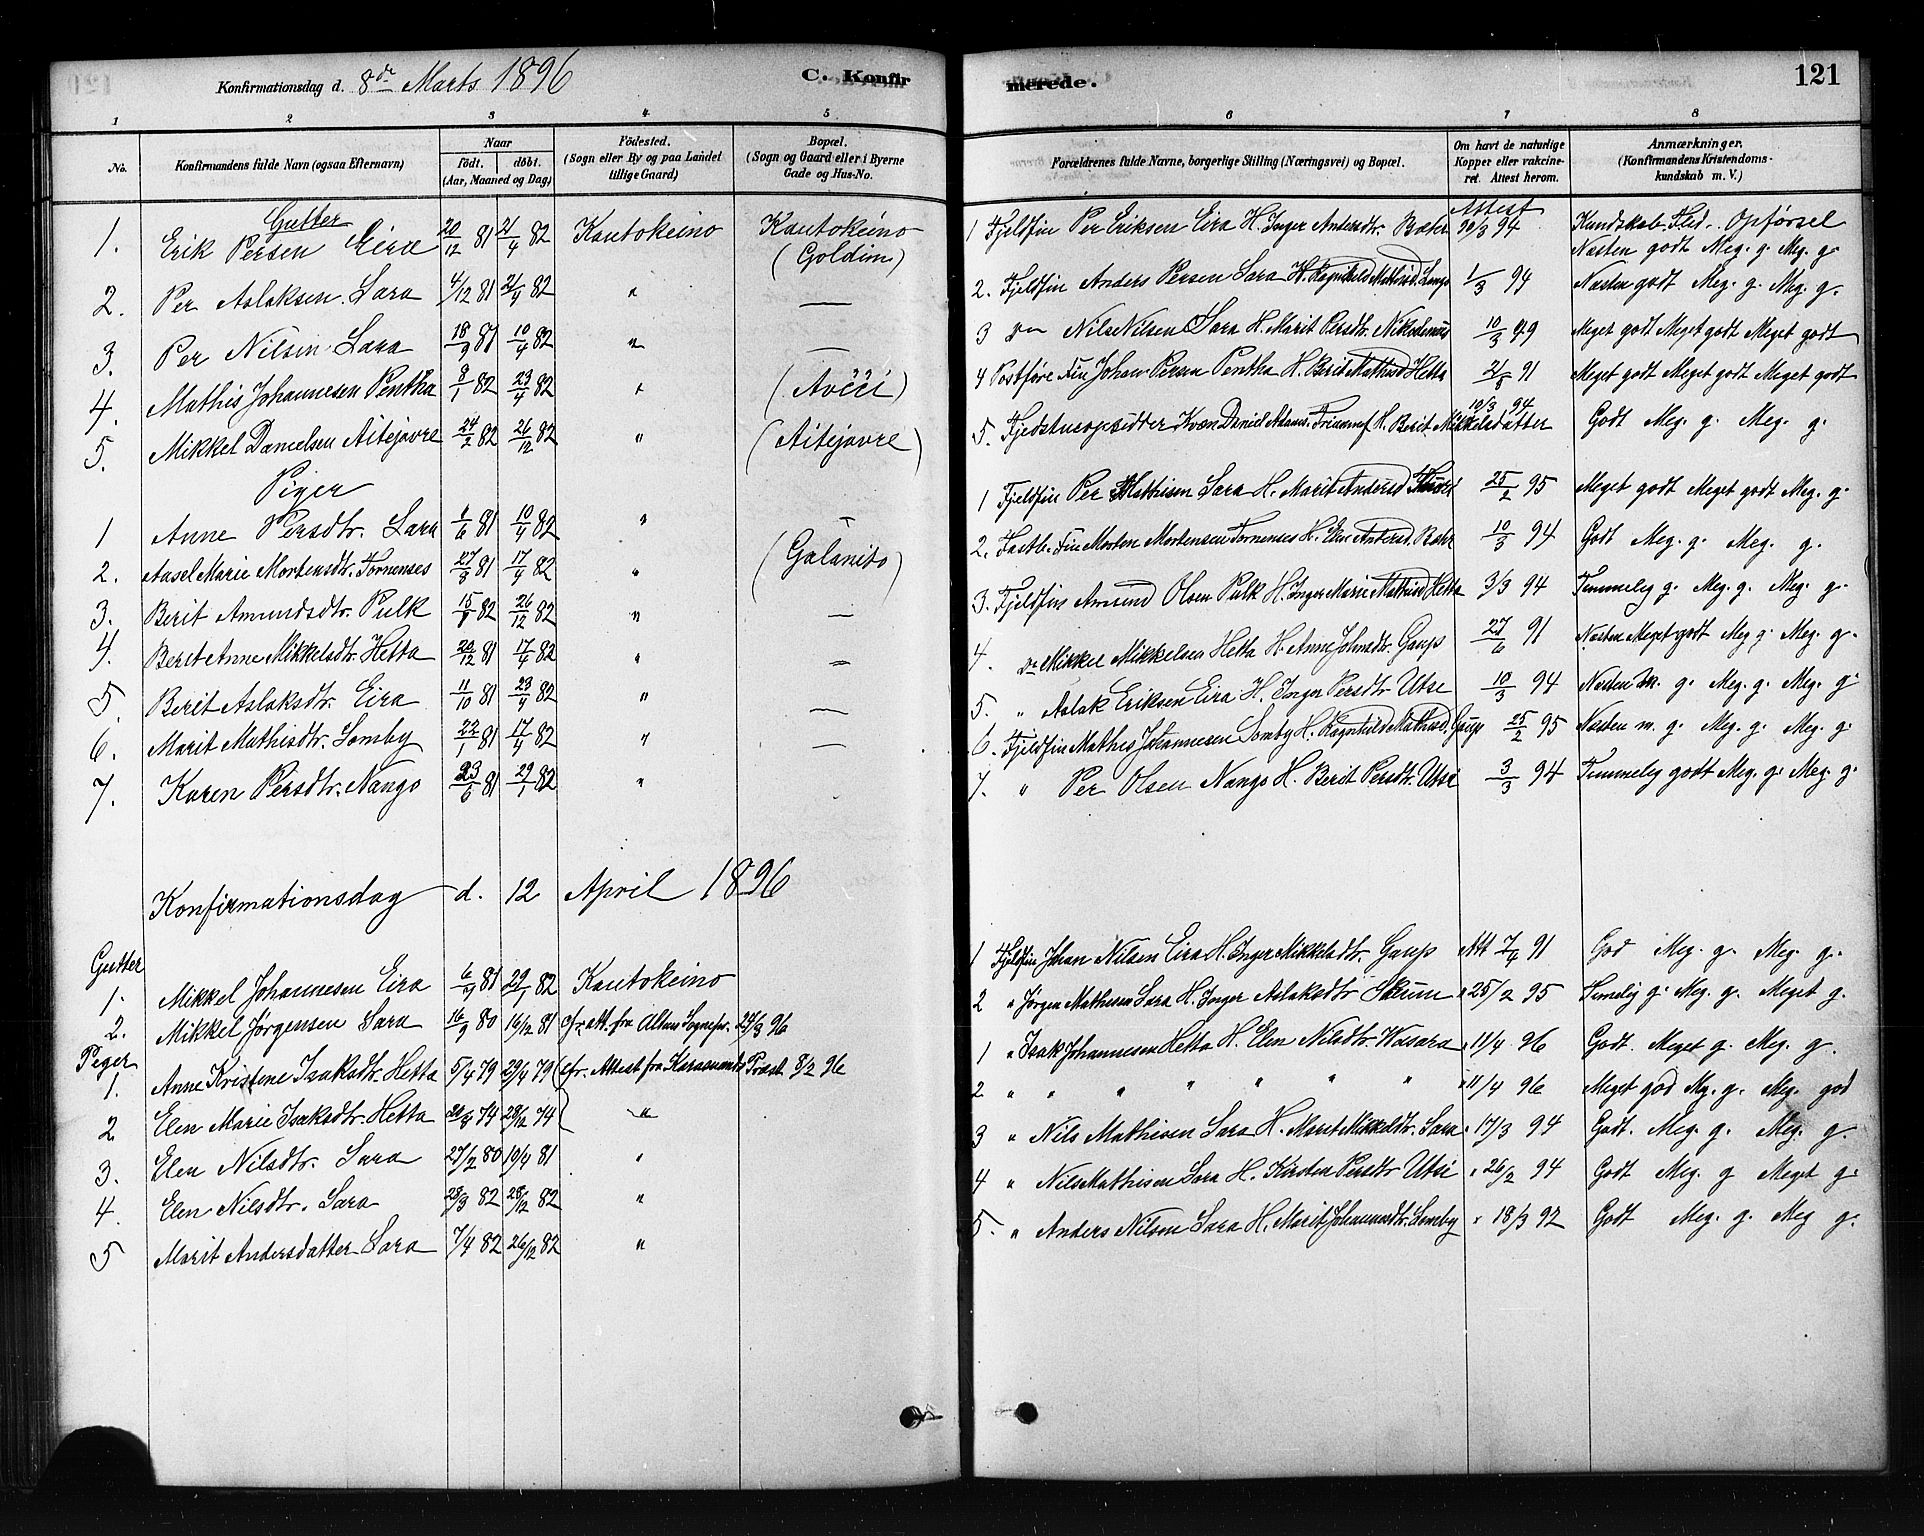 Konfirmationsdag d. 8de Marts 1896
C. Konfir
merede.
121
1 2 3 4 5 6 7 8
No.
Konfirmandens fulde Navn (ogsaa Efternavn)
Naar
födt. döbt.
(Aar, Maaned og Dag)
Födested.
(Sogn eller By og paa Landet
tillige Gaard)
Bopæl.
(Sogn og Gaard eller i Byerne
Gade og Hus-No.
Forældrenes fulde Navne, borgerlige Stilling (Næringsvei) og Bopæl.
Om havt de naturlige
Kopper eller vakcine-
ret. Attest herom.
Anmærkninger.
(Konfirmandens Kristendoms-
kundskab m. V.)
Gutter
Attest
Kundskab. Flid. Opförsel
1. Erik Persen Eira 20/12 81 21/4 82 Kautokeino Kautokeino (Goldin) 1 Fjeldfin Per Eriksen Eira H. Inger Andersdtr. Bæhr 10/3 94 Næsten godt Meg. g. Meg. g.
2. Per Aslaksen Sara 4/12 81 21/4 82 " — 2. Fjeldfin Anders Persen Sara H. Ragnhild Mathisd. 1/3 94 Næsten godt Meg. g. Meg. g.
3. Per Nilsen Sara 18/9 81 10/4 82 " — 3 Do Nils Nilsen Sara H. Marit Persdtr. Nikodemus 10/3 Meget godt Meget godt Meget godt
4. Mathis Johannesen Pentha 8/1 82 23/4 82 " (Avčči) 4 Postföre Fin Johan Persen Pentha H. Berit Mathisd Hetta 91 Meget godt Meget godt Meget godt
5. Mikkel Danielsen Aitejavre 24/2 82 26/12 82 " (Aitejavre) 5. Fjeldstueopsidder Kvæn Daniel Adams. H. Berit Mikkelsdatter 10/3 94 Godt Meg. g. Meg. g.
Piger
1 Anne Persdtr. Sara 1/6 81 10/4 82 " — 1 Fjeldfin Per Mathisen Sara H. Marit Andersd 25/2 95 Meget godt Meget godt Meg. g.
2. Aasel Marie Mortensdtr. Tornenses 27/8 81 17/4 82 " (Galanito) 2. Fastb. Fin Morten Mortensen Tornenses H. Elen Andersd. Bæhr 10/3 94 Godt Meg. g. Meg. g.
3. Berit Amundsdtr. Pulk 15/8 82 26/12 82 " — 3. Fjeldfin Amund Olsen Pulk H. Inger Marie Mathisd Hetta 3/3 94 Temmelig g. Meg. g. Meg. g.
4. Berit Anne Mikkelsdtr. Hetta 20/12 81 17/4 82 " — 4. Do Mikkel Mikkelsen Hetta H. Anne Johnsdtr. Gaup 27/6 91 Næsten Meget godt Meg g. Meg. g.
5. Berit Aslaksdtr. Eira 11/10 81 23/4 82 " — 5. " Aslak Eriksen Eira H. Inger Persdtr Utse 10/3 94 Næsten M. g. Meg. g. Meg. g.
6. Marit Mathisdtr. Somby 22/1 81 17/4 82 " — 6. Fjeldfin Mathis Johannesen Somby H. Ragnhild Mathisd. Gaup 25/2 95 Næsten m. g. Meg. g. Meg. g.
7. Karen Persdtr. Nango 23/6 81 29/1 82 " 7. " Per Olsen Nango H. Berit Persdtr. Utsi 3/3 94 Temmelig godt Meg. g. Meg. g.
Konfirmationsdag d. 12 April 1896
Gutter
1. Mikkel Johannesen Eira 6/9 81 29/1 82 Kautokeino 1 Fjeldfin Johan Nilsen Eira H. Inger Mikkelsdtr. Gaup Att 7/4 91 God Meg. g. Meg. g.
2. Mikkel Jörgensen Sara 16/9 80 16/12 81 cfr. att. fra Altens Sognepr. 24/3 96 2 " Jörgen Mathisen Sara H. Inger Aslaksdtr Skum " 25/2 95 Temelig g. Meg. g. Meget g.
Piger
1. Anne Kristine Isaksdtr. Hetta 5/4 79 29/4 79 (cfr. Attest fra Karasjands Præst 8/2 96 1 " Isak Johannesen Hetta H. Elen Nilsdtr. Wasara " 11/4 96 Godt. Meget g. Meg. g.
2 Elen Marie Isaksdtr. Hetta 74 28/12 74 " 2 " " " " " " " " 11/4 96 Meget god Mg. g. Meg. god
3. Elen Nilsdtr. Sara 27/2 80 19/4 81 " 3 " Nils Mathisen Sara H. Marit Mikkelsdtr. Sara " 17/3 94 Godt. Meg. g. Meg. g.
4. Elen Nilsdtr. Sara 28/3 82 28/12 82 " 4 " Nils Mathisen Sara H. Kirsten Persdtr Utsi " 26/2 94 Godt Meg. g Meget g.
5 Marit Andersdatter Sara 7/4 82 26/12 82 " 5. " Anders Nilsen Sara H. Marit Johannesdtr. Somby " 18/3 92 Godt Meg. g. Meg g.